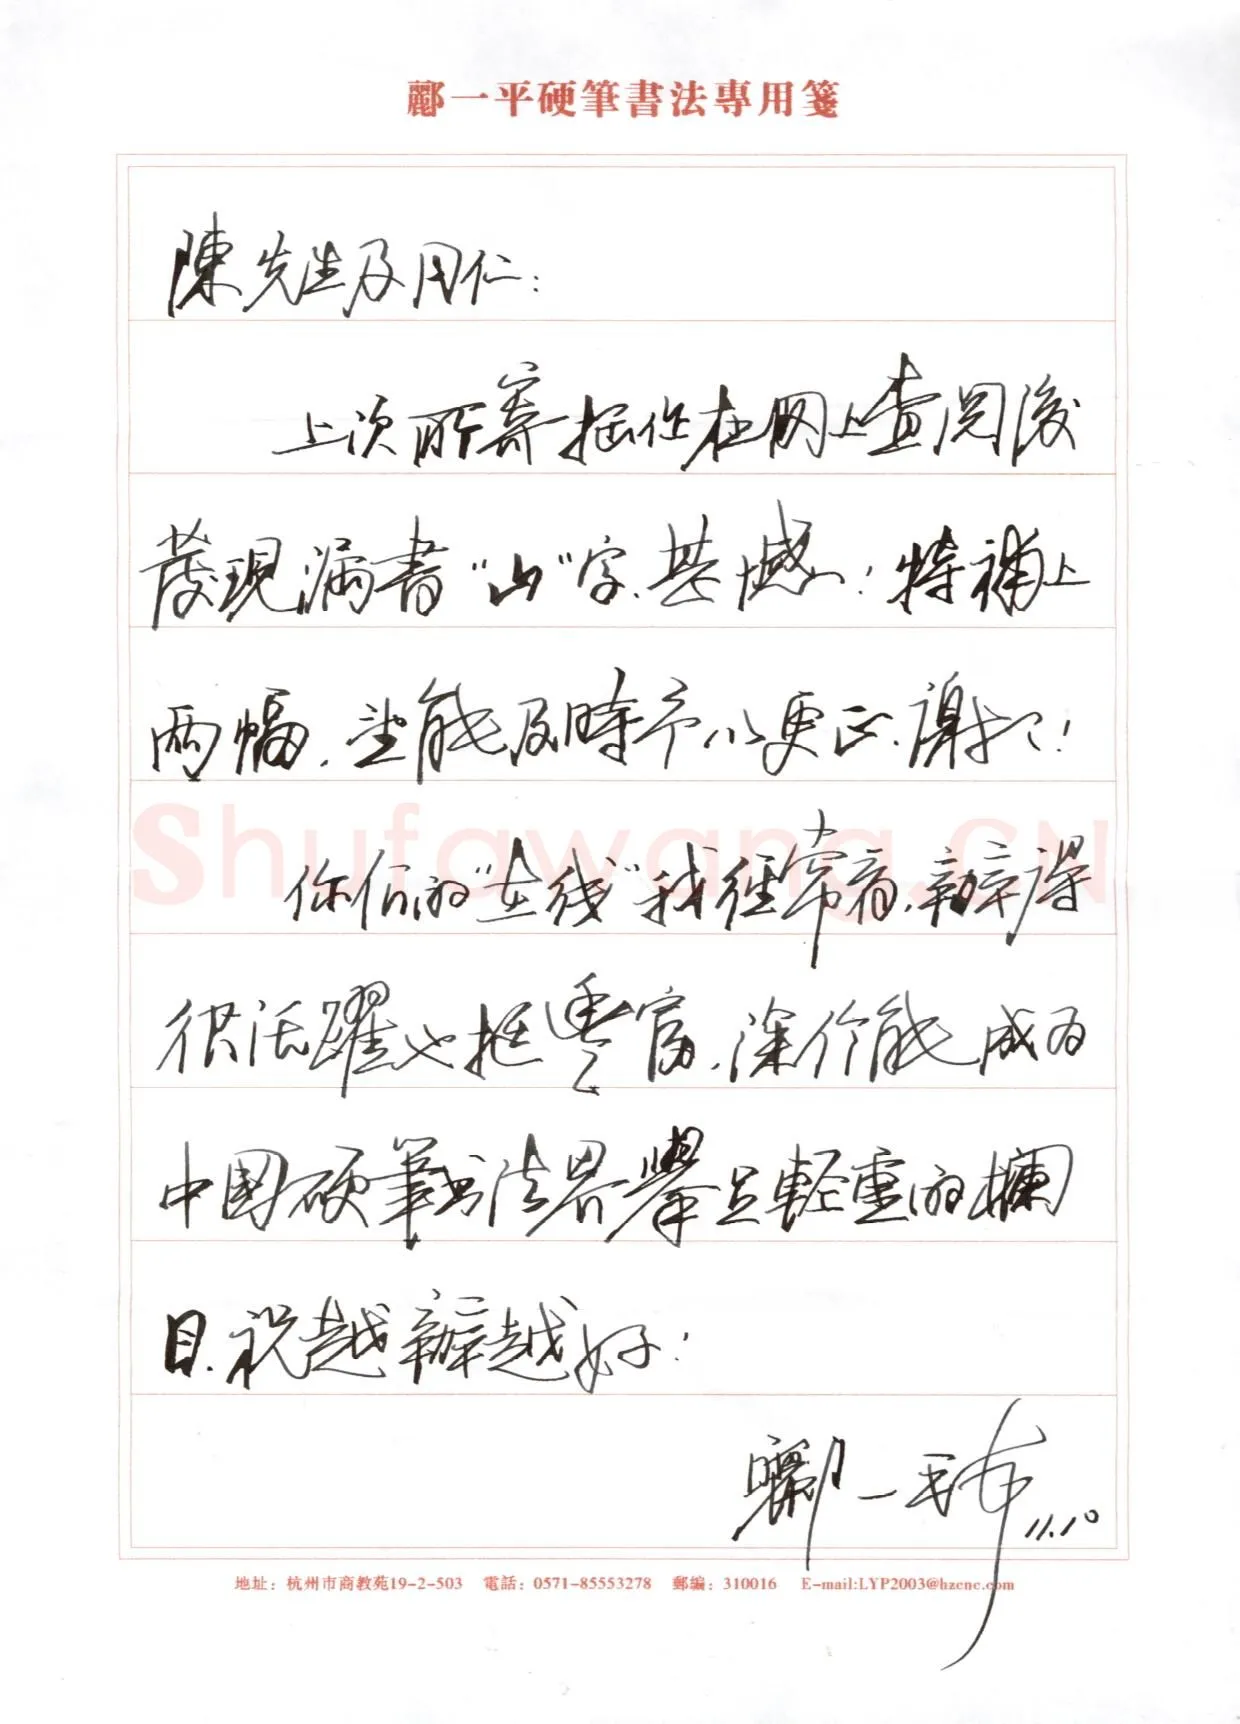 酈一平硬筆書法專用箋
陳先生及同仁：
上次所寄拙作在网上查閱後
發現漏書“山”字、甚憾！特補上
两幅，望能及時予以更正、謝謝！
Shufawang.CN
你们的“在线”我經常看，辦得
很活躍也挺豐富，深信能成为
中國硬筆书法界舉足輕重的欄
目，祝越辦越好！
酈一平 11.10
地址：杭州市商教苑19-2-503 電話：0571-85553278 郵編：310016 E-mail:LYP2003@hzcnc.com